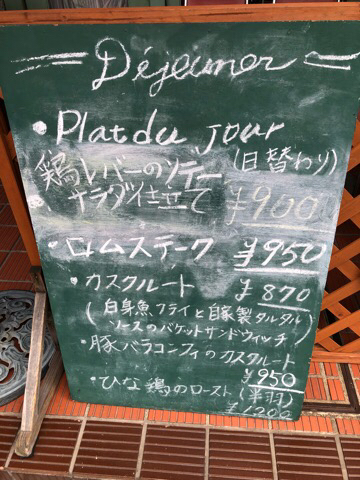 Déjeuner
・Plat du jour
(日替わり)
鶏レバーのソテー
サラダ仕立て ¥900
・ロムステーク ¥950
・カスクルート ¥870
(白身魚フライと自家製タルタル
ソースのバゲットサンドウィッチ)
・豚バラコンフィのカスクルート
¥950
・ひな鶏のロースト(半羽)
¥1200